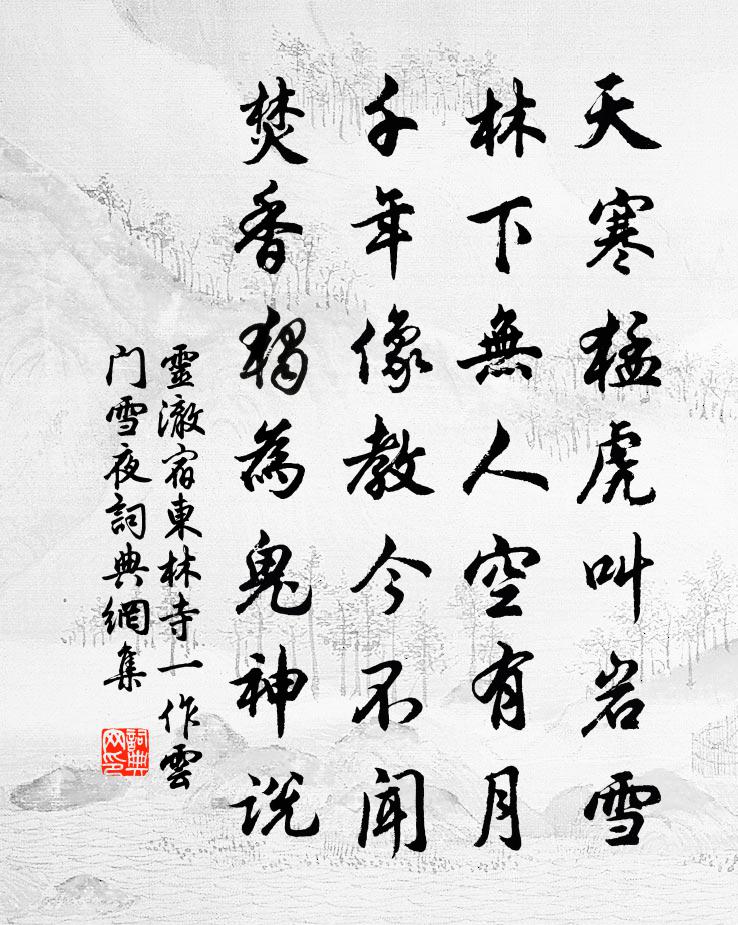 天寒猛虎叫岩雪
林下無人空有月
千年像教今不闻
焚香獨為鬼神说
靈澈宿東林寺一作雲
门雪夜詞典網集
詞典
网印